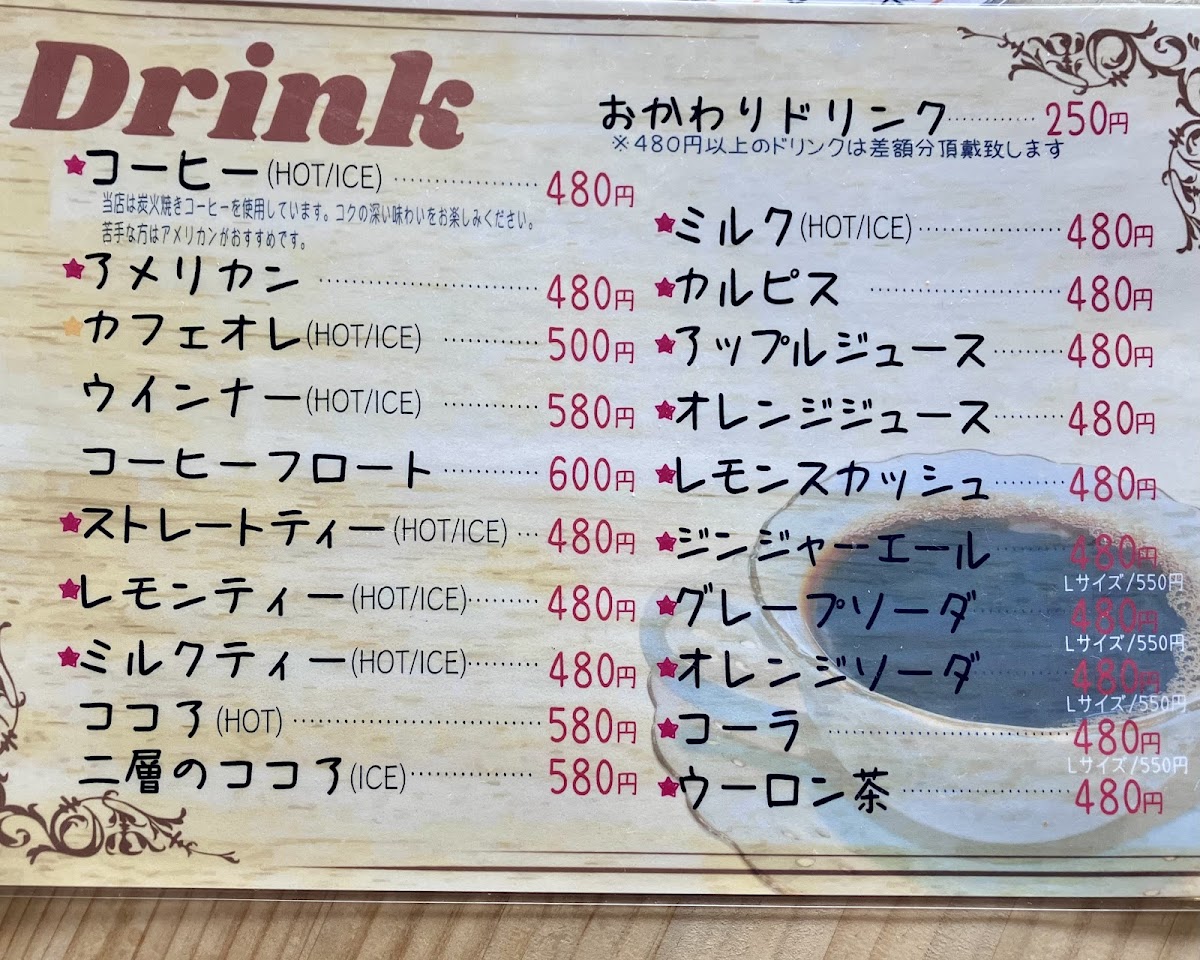 Drink
★コーヒー(HOT/ICE) ………… 480円
当店は炭火焼きコーヒーを使用しています。コクの深い味わいをお楽しみください。
苦手な方はアメリカンがおすすめです。
★アメリカン ………… 480円
★カフェオレ(HOT/ICE) ………… 500円
ウインナー(HOT/ICE) ………… 580円
コーヒーフロート ………… 600円
★ストレートティー(HOT/ICE) … 480円
★レモンティー(HOT/ICE) ……… 480円
★ミルクティー(HOT/ICE) ……… 480円
ココア(HOT) ………… 580円
二層のココア(ICE) ………… 580円
おかわりドリンク ………… 250円
※480円以上のドリンクは差額分頂戴致します
★ミルク(HOT/ICE) ………… 480円
★カルピス ………… 480円
★アップルジュース ……… 480円
★オレンジジュース ……… 480円
★レモンスカッシュ ……… 480円
★ジンジャーエール ……… 480円
Lサイズ/550円
★グレープソーダ ……… 480円
Lサイズ/550円
★オレンジソーダ ……… 480円
Lサイズ/550円
★コーラ ………… 480円
Lサイズ/550円
★ウーロン茶 ………… 480円